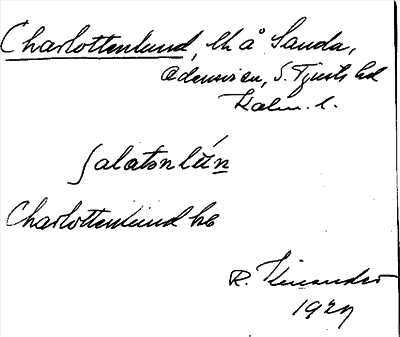 Charlottenlund, lh å Sanda,
Ödenvien, S. Tjusts hd
Kalm. l.
Salatonlún
Charlottenlund he
R. Kinander
1927